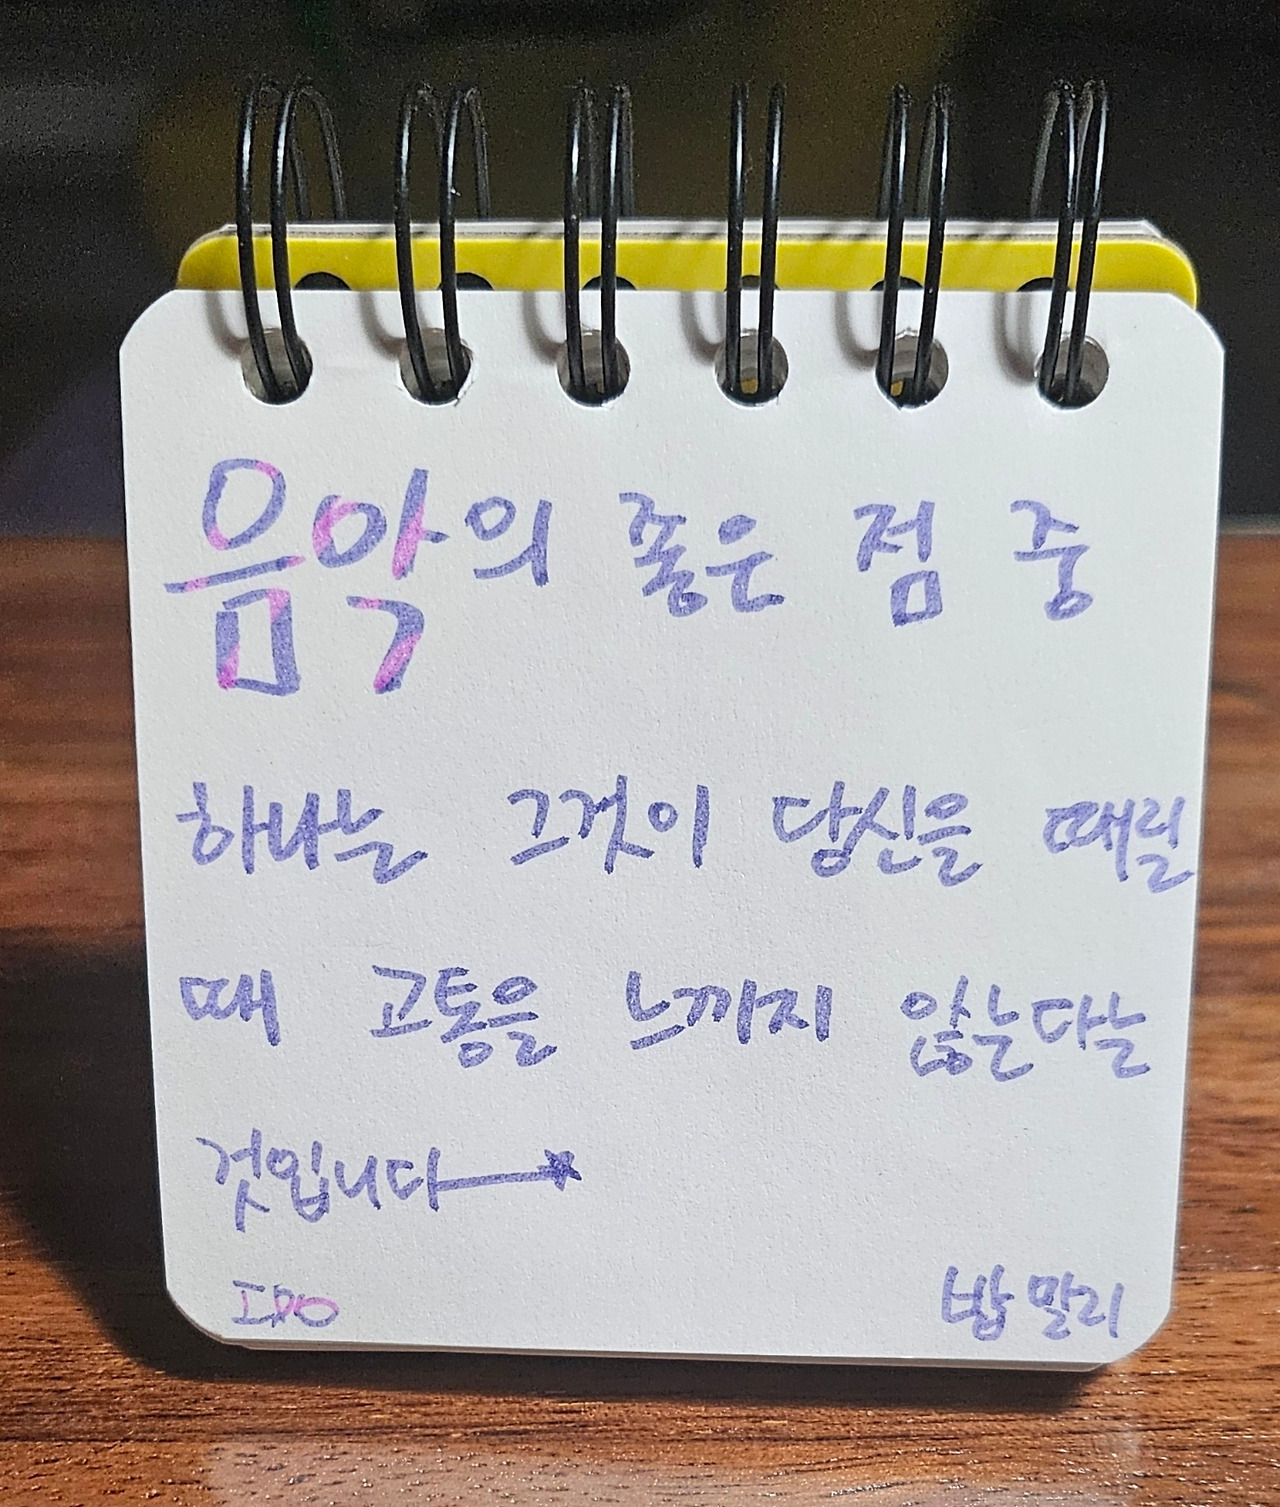 음악의 좋은 점 중
하나는 그것이 당신을 때릴
때 고통을 느끼지 않는다는
것입니다
밥 말리